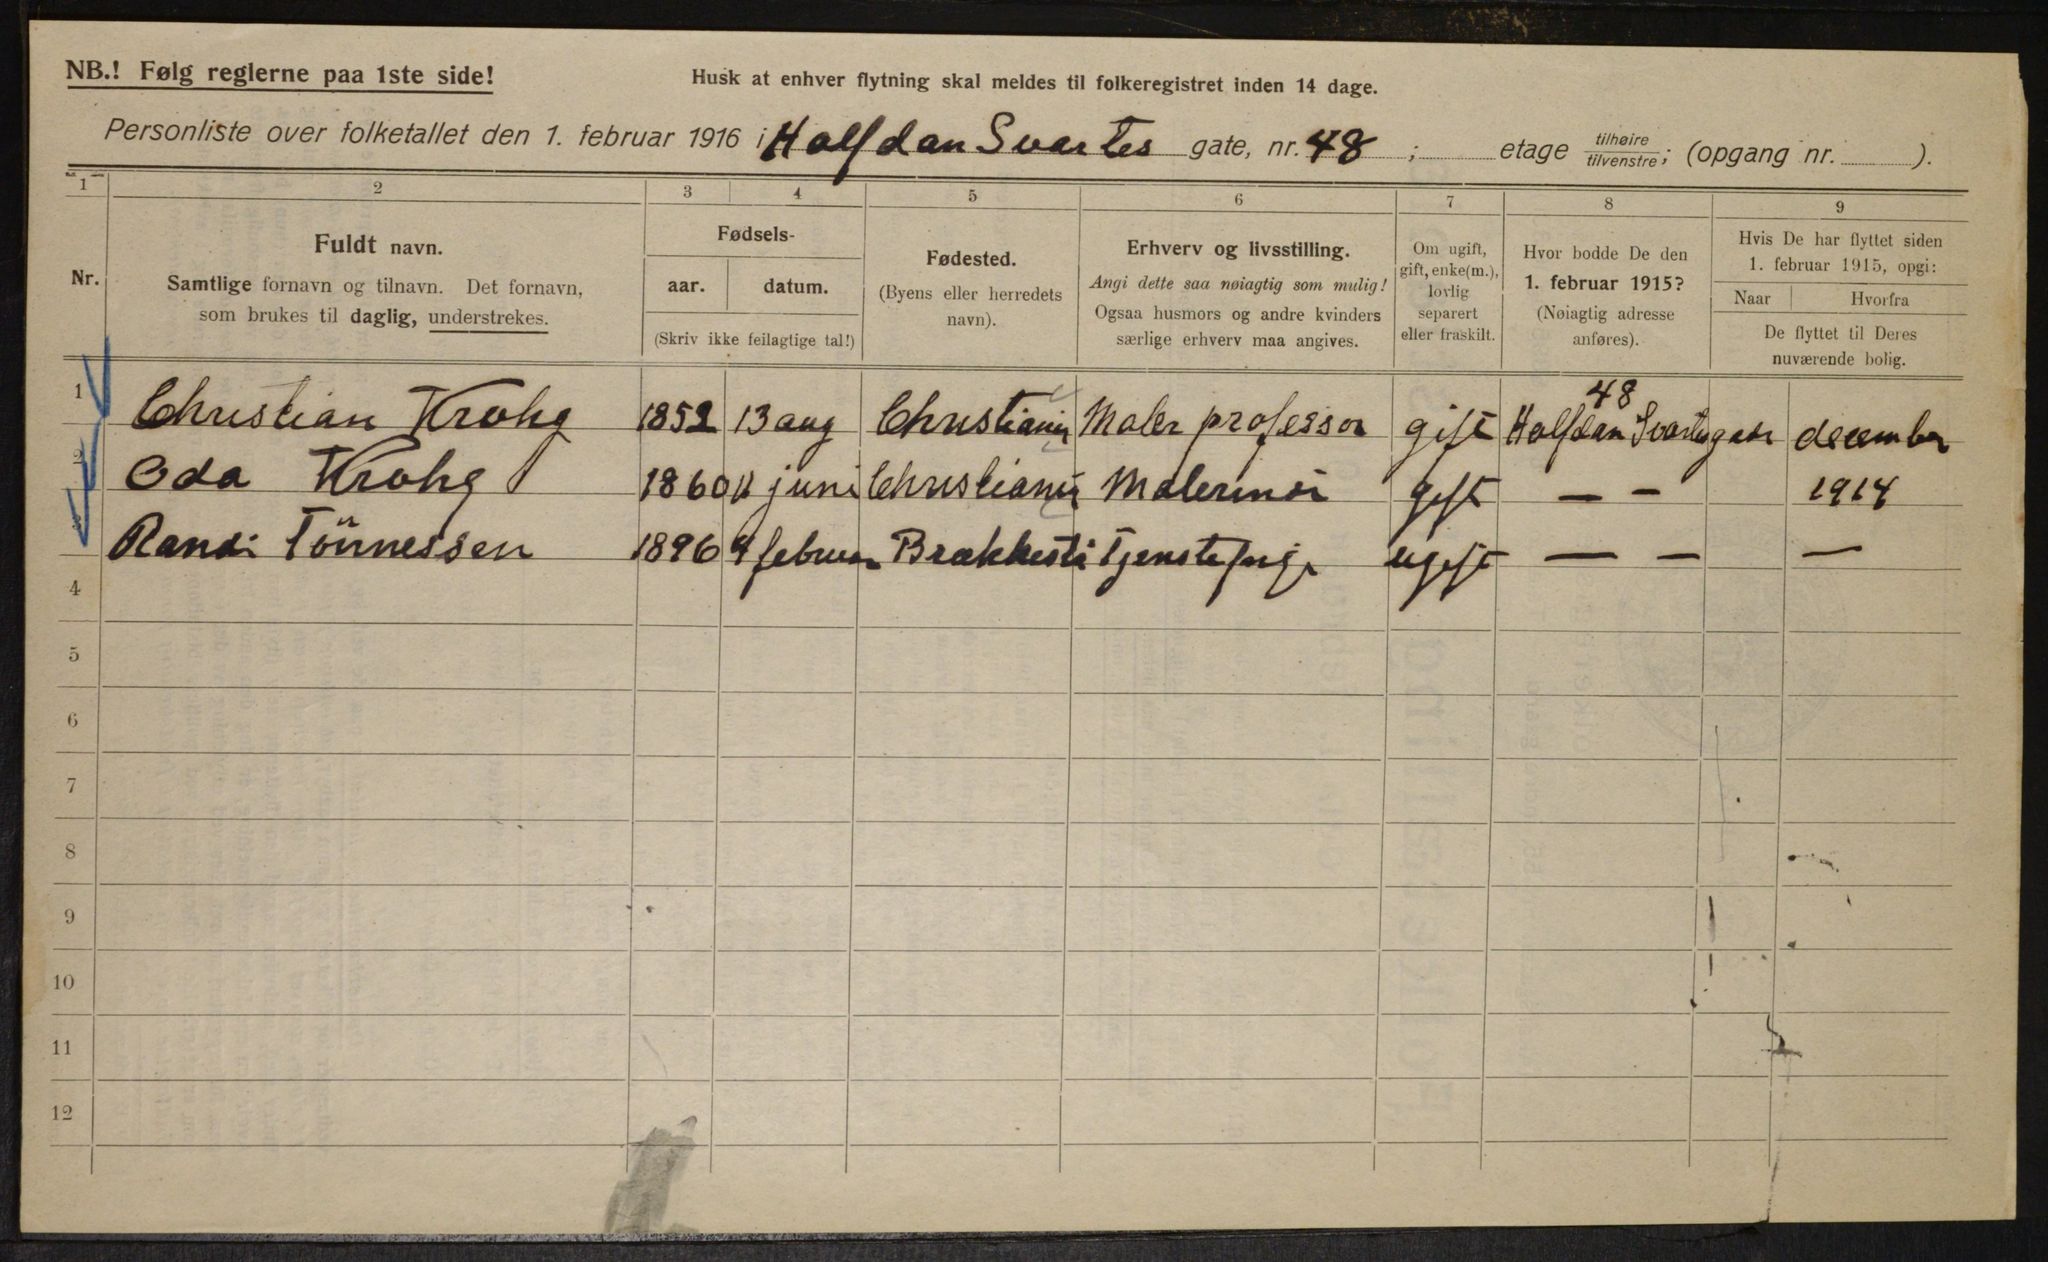 NB.! Følg reglerne paa 1ste side!
Husk at enhver flytning skal meldes til folkeregistret inden 14 dage.
Personliste over folketallet den 1. februar 1916 i Halfdan Svartes gate, nr. 48 ; etage tilhøire/tilvenstre; (opgang nr. ).
1 2 3 4 5 6 7 8 9
Nr.
Fuldt navn.
Samtlige fornavn og tilnavn. Det fornavn,
som brukes til daglig, understrekes.
Fødsels-
aar. datum.
(Skriv ikke feilagtige tal!)
Fødested.
(Byens eller herredets
navn).
Erhverv og livsstilling.
Angi dette saa nøiagtig som mulig!
Ogsaa husmors og andre kvinders
særlige erhverv maa angives.
Om ugift,
gift, enke(m.),
lovlig
separert
eller fraskilt.
Hvor bodde De den
1. februar 1915?
(Nøiagtig adresse
anføres).
Hvis De har flyttet siden
1. februar 1915, opgi:
Naar Hvorfra
De flyttet til Deres
nuværende bolig.
48
1 Christian Krohg 1852 13 aug Christiania Maler professor gift Halfdan Svartesgade december
2 Oda Krohg 1860 11 juni Christiania Malerinde gift — — 1914
3 Randi Tönnessen 1896 9 februar Brækkestø Tjenestepige ugift — — —
4
5
6
7
8
9
10
11
12